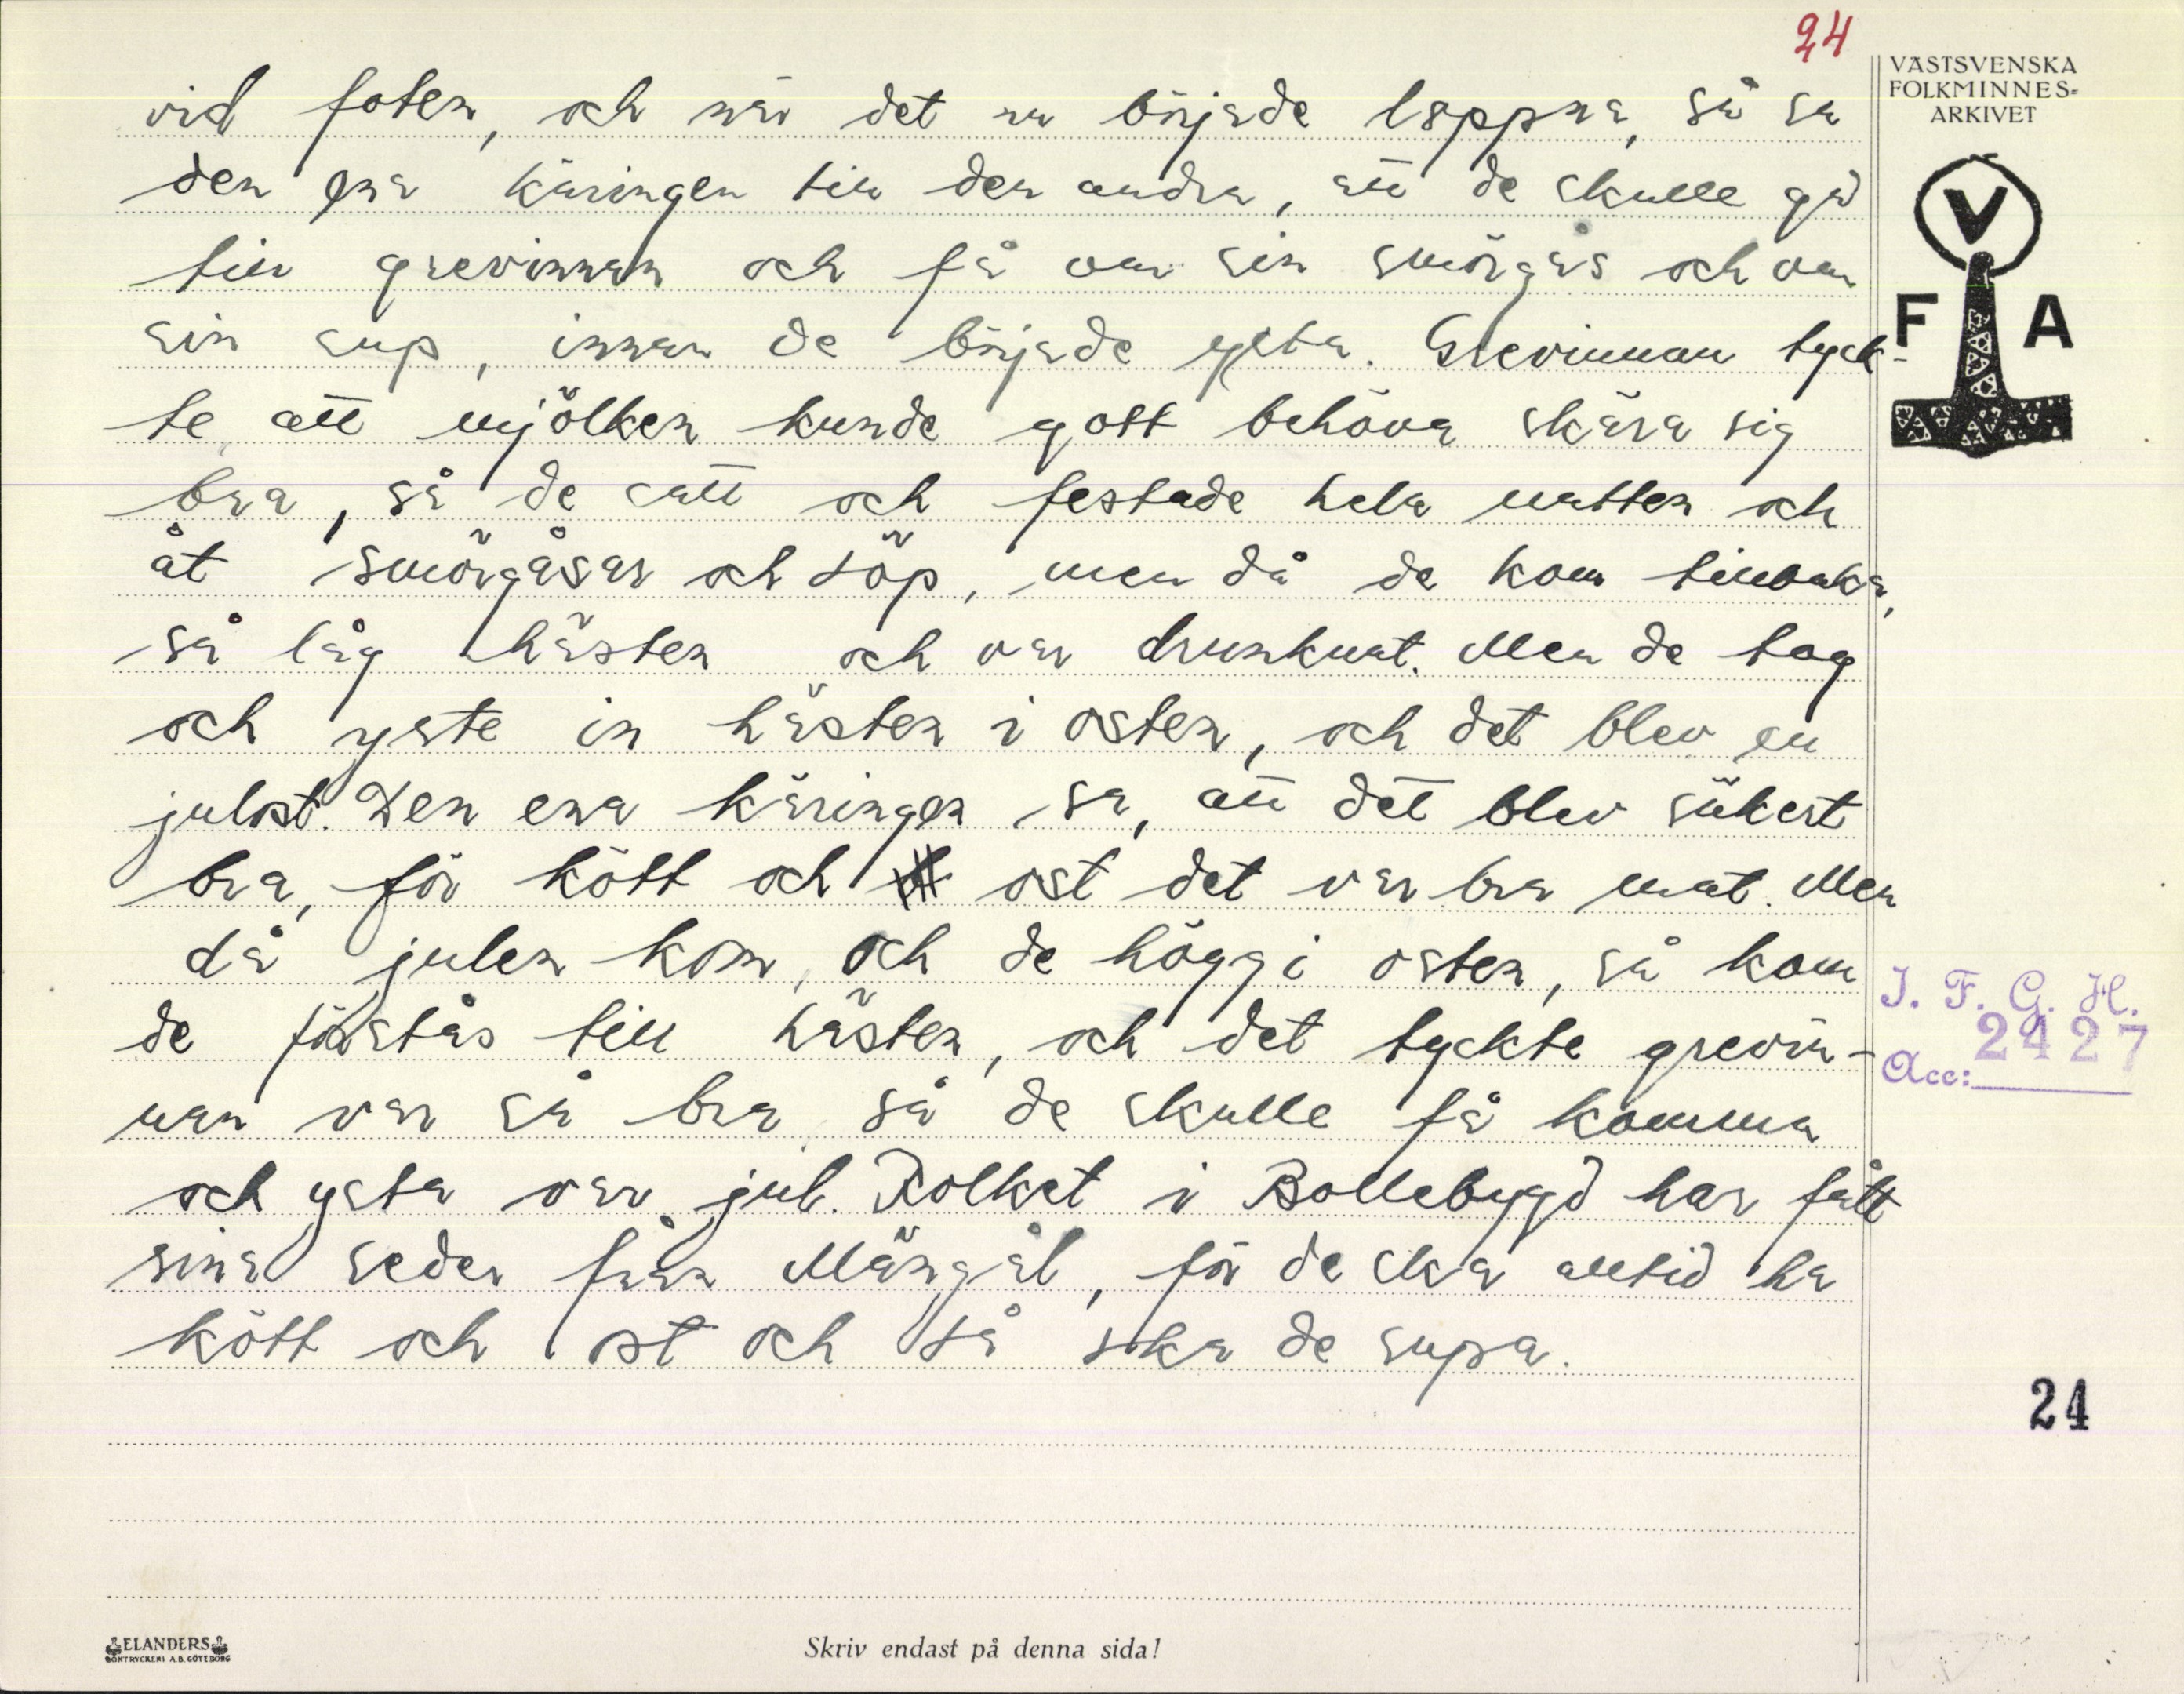 24
VÄSTSVENSKA
FOLKMINNES-
ARKIVET
V
F A
vid foten, och när det nu började löppna, så sa
den ena käringen till den andra, att de skulle gå
till grevinnan och få var sin smörgås och var
sin sup, innan de började ysta. Grevinnan tyck-
te, att mjölken kunde gott behöva skära sig
bra, så de satt och festade hela natten och
åt smörgåsar och söp, men då de kom tillbaka,
så låg hästen och var drunknat. Men de tog
och yste in hästen i osten, och det blev en
julost. Den ena käringen sa, att det blev säkert
bra, för kött och ost det var bra mat. Men
då julen kom, och de högg i osten, så kom
de förstås till hästen, och det tyckte grevin-
nan var så bra så de skulle få komma
och ysta var jul. Folket i Bollebygd har fått
sina seder från Mängål, för de ska alltid ha
kött och ost och så ska de supa.
I. F. G. H.
2427
Acc:
24
ELANDERS
BOKTRYCKERI A.B. GÖTEBORG
Skriv endast på denna sida!